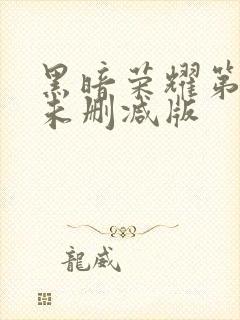 黑暗荣耀第
未删减版
龍威